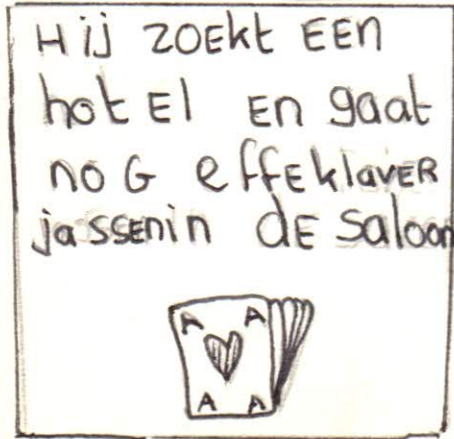 Hij ZOEkt EEN
hotEl EN gaat
noG effEklavER
jassEnin dE saloon
A A
A A